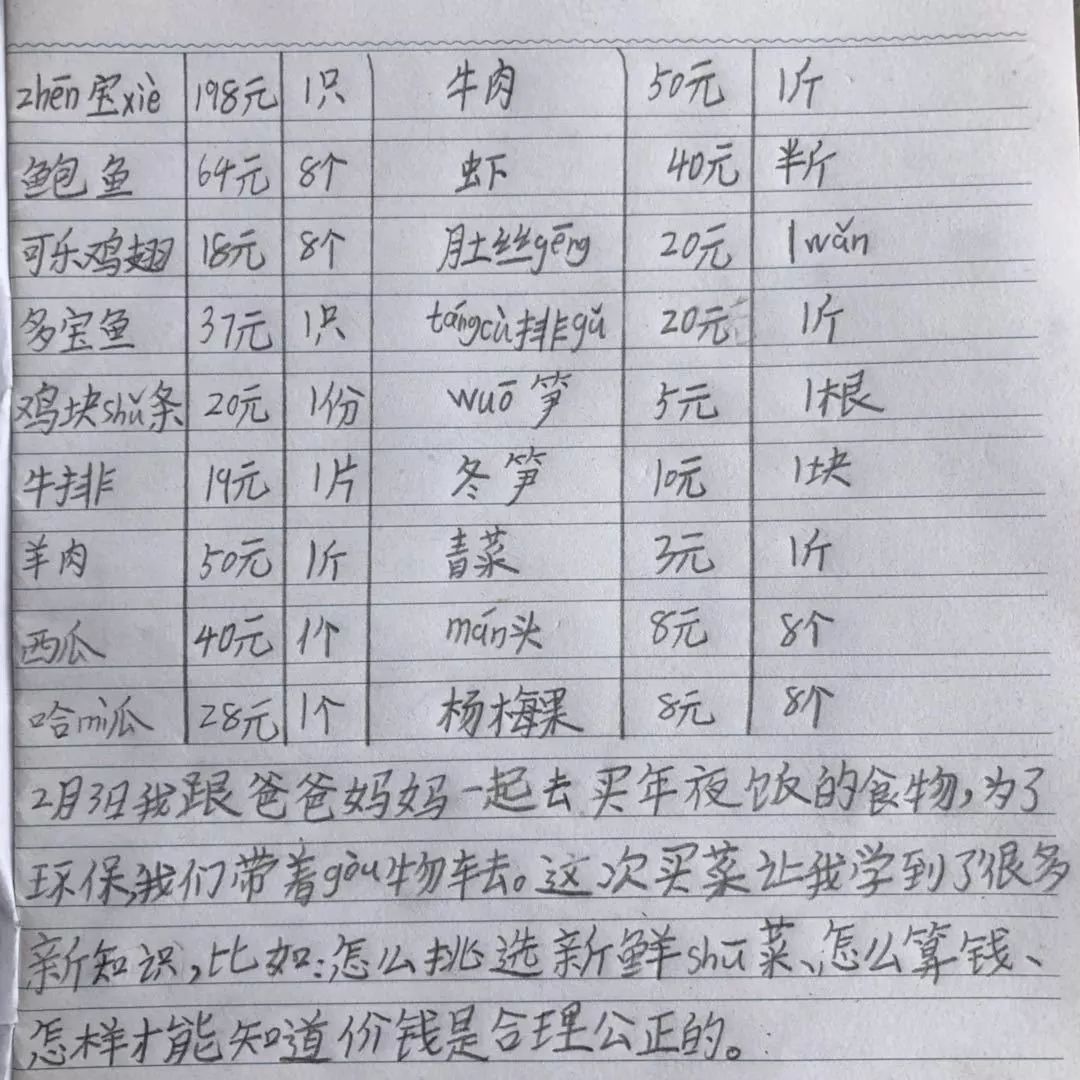 zhēn宝xiè 198元 1只 牛肉 50元 1斤
鲍鱼 64元 8个 虾 40元 半斤
可乐鸡翅 18元 8个 肚丝gēng 20元 1wǎn
多宝鱼 37元 1只 tángcù排gǔ 20元 1斤
鸡块shǔ条 20元 1份 wuō笋 5元 1根
牛排 19元 1片 冬笋 10元 1块
羊肉 50元 1斤 青菜 3元 1斤
西瓜 40元 1个 mán头 8元 8个
哈mì瓜 28元 1个 杨梅果 8元 8个
2月3日我跟爸爸妈妈一起去买年夜饭的食物,为了
环保,我们带着gòu物车去。这次买菜让我学到了很多
新知识,比如:怎么挑选新鲜shū菜、怎么算钱、
怎样才能知道价钱是合理公正的。